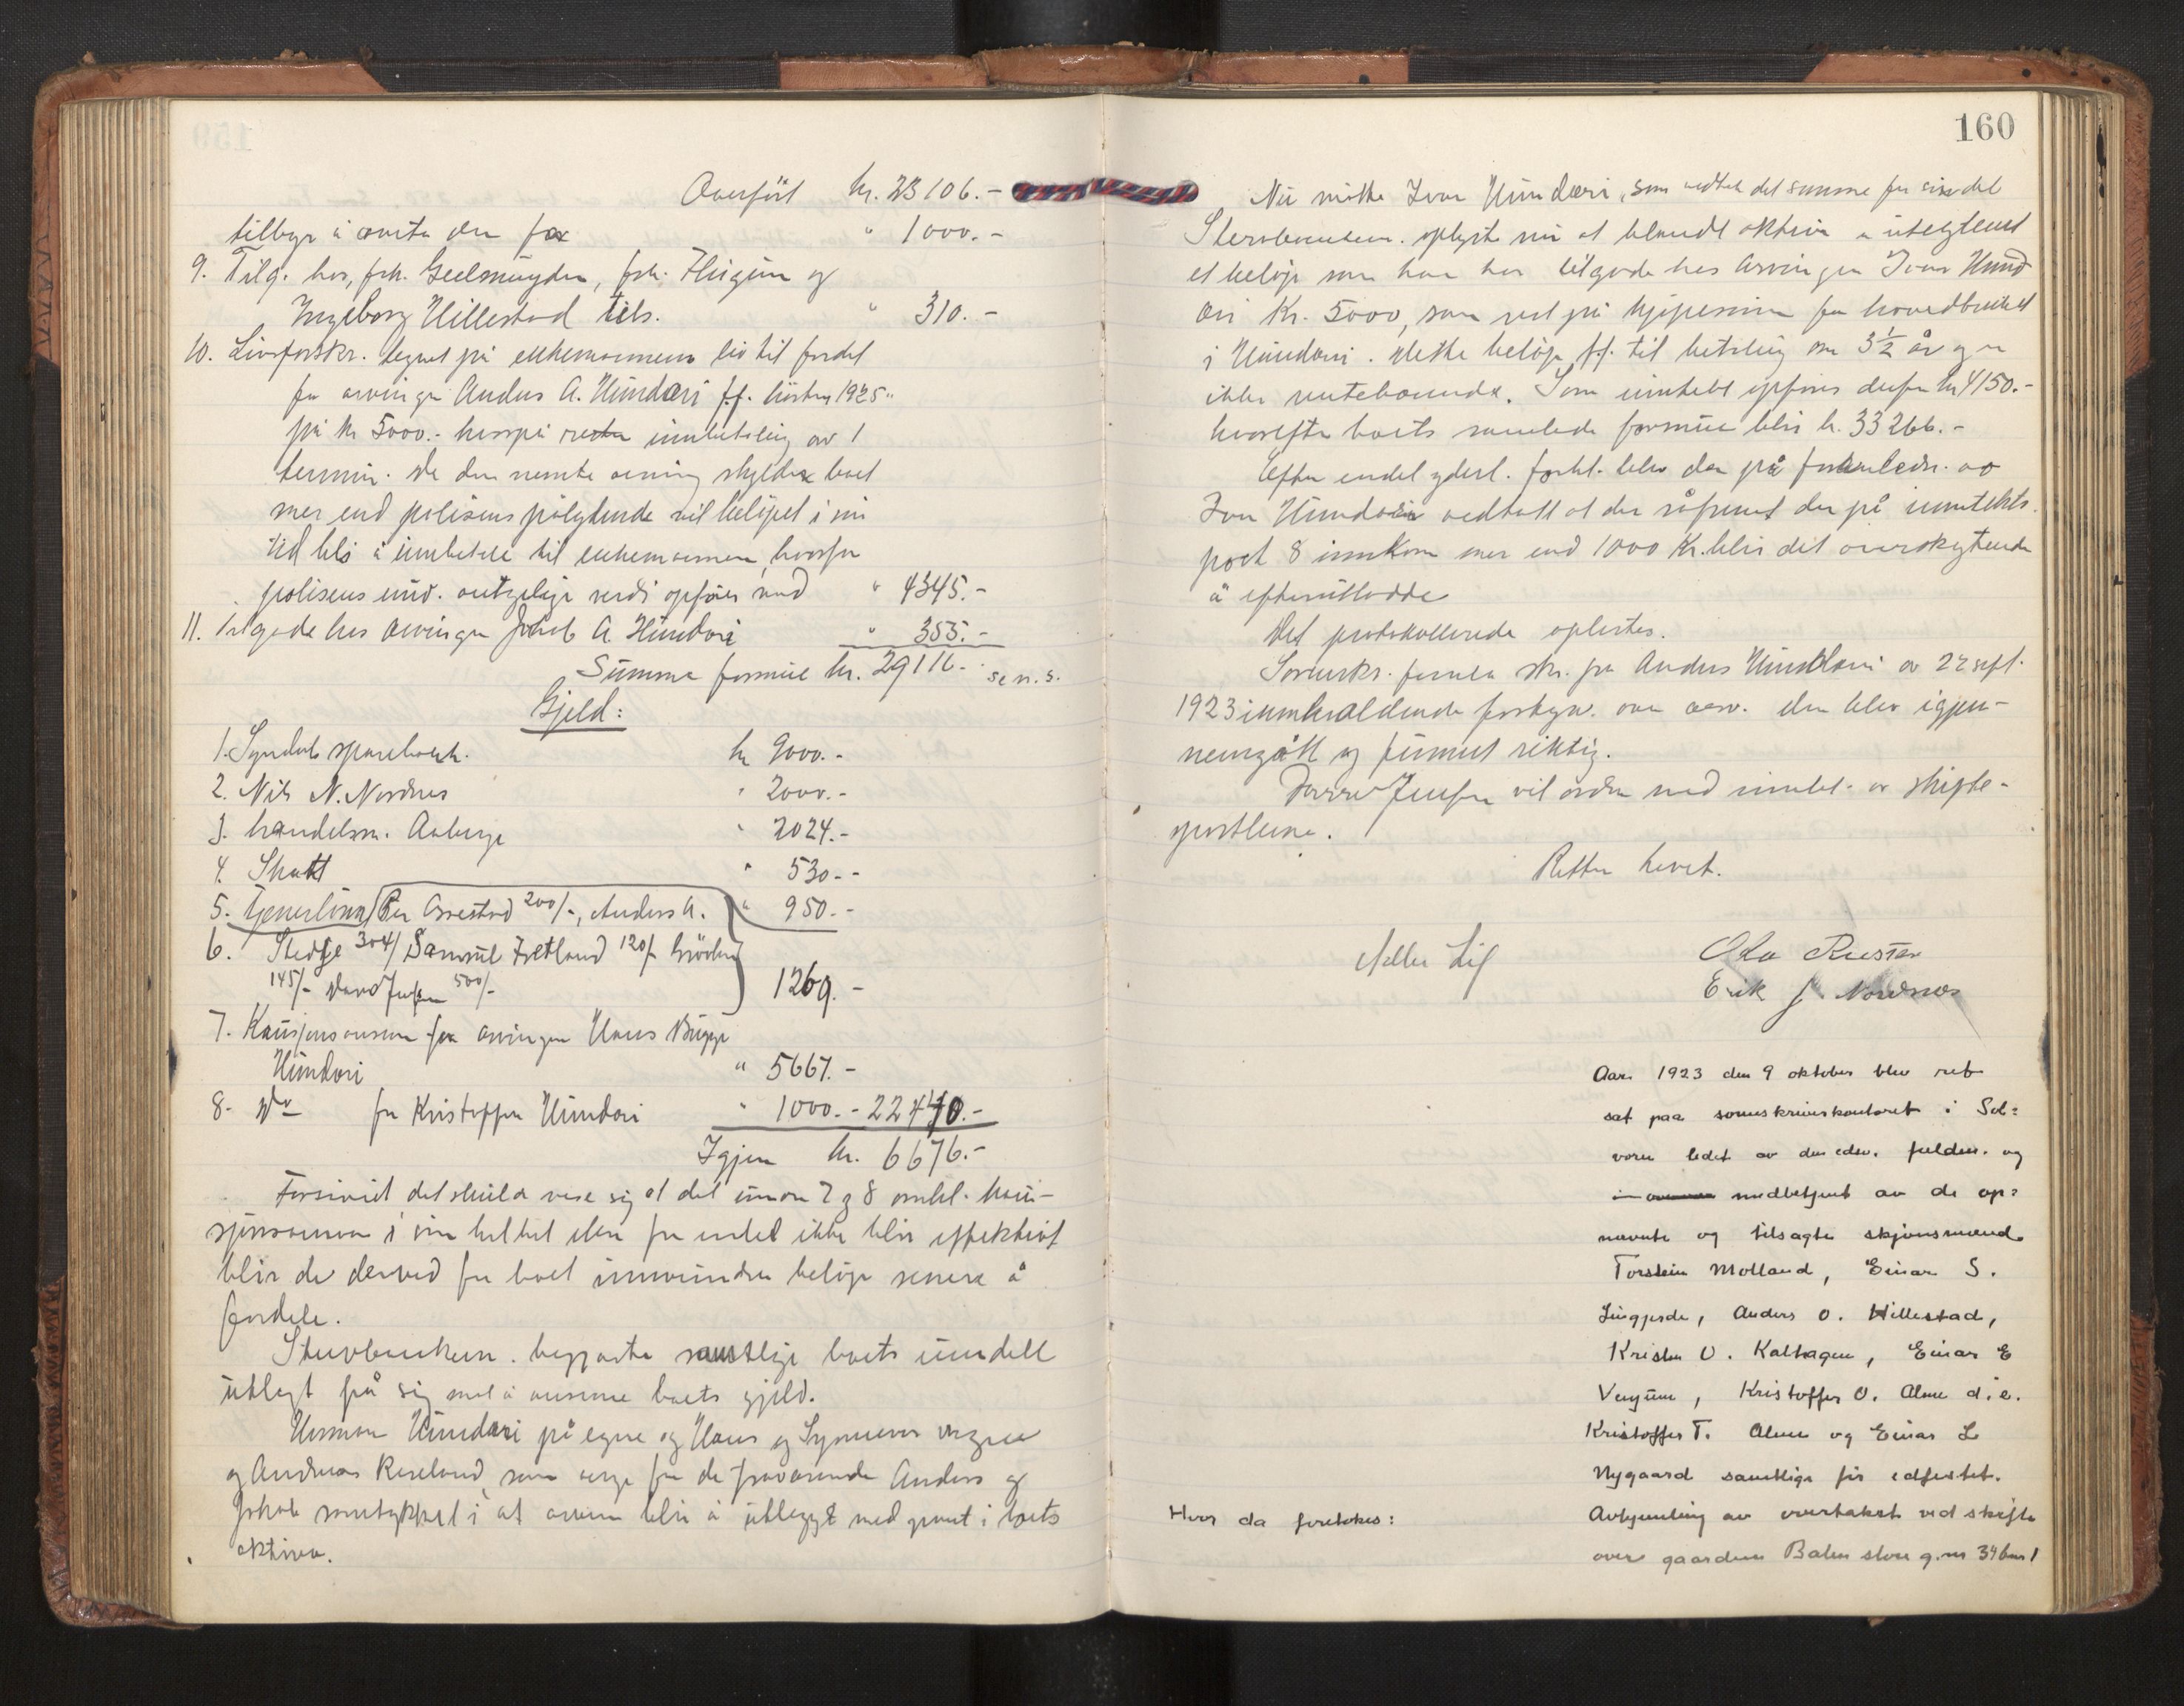 Overført kr. 23106.-
tilbyr å overta den for " 1000.-
9. Tilg. hos, frk. Geelmuyden, frk. Flugum og
Ingeborg Hillestad tils. " 310.-
10. Livsforskr. tegnet på enkemannens liv til fordel
for arvingen Andus A. Hundori f.f. høsten 1925
på kr 5000.- hvorpå rester innbetaling av 1
termin. Da den nevnte arving skylder boet
mer end polisens pålydende vil beløpet i sin
tid bli å innbetale til enkemannen, hvorfor
polisens nuv. verdi opføres med " 4345.-
11. Tilgode hos arvingen Jakob A. Hundori " 355.-
Summa formue kr. 29116.- se n. s.
Gjeld:
1. Syndals sparebank. kr 9000.-
2. Nils N. Nordnes " 2000.-
3. handelsm. Aaberge " 2024.-
4. Skatt " 530.-
5. Tjenerlønn (Per Årrestad 200/-, Anders A. " 950.-
6. Stedje 304/ Samuel Fretland 120/-
145/- 500/- 1269.-
7. Kausjonsansvar for arvingen Hans Brügge
Hundori " 5667.-
8. Do for Kristoffer Hundori " 1000.- 22440.-
Igjen kr. 6676.-
Forsåvidt det skulde vise sig at det under 7 og 8 omhl. kau-
sjonsansvar i sin helhet eller for endel ikke blir effektivt
blir de derved for boet innvundne beløp senere å
fordele.
Stervboenken. begjærte samtlige boets eiendele
utlagt på sig mot å overta boets gjeld.
Herman Hundori på egne og Hans og Synneves vegne
og Andreas Reseland som verge for de fraværende Anders og
Jakob samtykket i at arven blir å utlegge med pant i boets
aktiva.
160
Nu møtte Ivar Hundori, som vedtok det samme for sin del
Stervboenken. oplyste nu at blandt aktiva er uteglemt
et beløp som han har tilgode hos arvingen Ivar Hund
ori Kr. 5000, som rest på kjøpesum for hovedbruket
i Hundori. Dette beløp f.f. til betaling om 3½ år og er
ikke rentebærende. Som inntekt opføres derfor kr 4150.-
hvorefter boets samlede formue blir kr. 33266.-
Efter endel yderl. forhl. blev der på foranledn. av
Ivar Hundori vedtatt at der såfremt der på inntekts
post 8 innkom mer end 1000 Kr. blir det overskytende
å efterutlodde
Det protokollerede oplestes.
Sorenskr. fremla skr. fra Andus Hundori av 22 sept.
1923 innholdende forskyn. om arv. den blev igjen-
nemgått og funnet riktig.
vil ordne med innbet. av skifte-
sportlene.
Retten hevet.
Ola Rusten
Erik J. Nordnes
Aar 1923 den 9 oktober blev ret
sat paa sorenskriverkontoret i Sol=
vorn ledet av den edsv. fuldm. og
medbetjent av de op=
nævnte og tilsagte skjønsmænd
Torstein Molland, Einar S.
Lingjerde, Anders O. Hillestad,
Kristen O. Kalhagen, Einar E
Venjum, Kristoffer O. Alme d.e.
Kristoffer T. Alme og Einar L
Nygaard samtlige før edfæstet.
Hvor da foretokes: Avhjemling av overtakst ved skifte
over gaarden Balen store g.nr 34 bnr 1